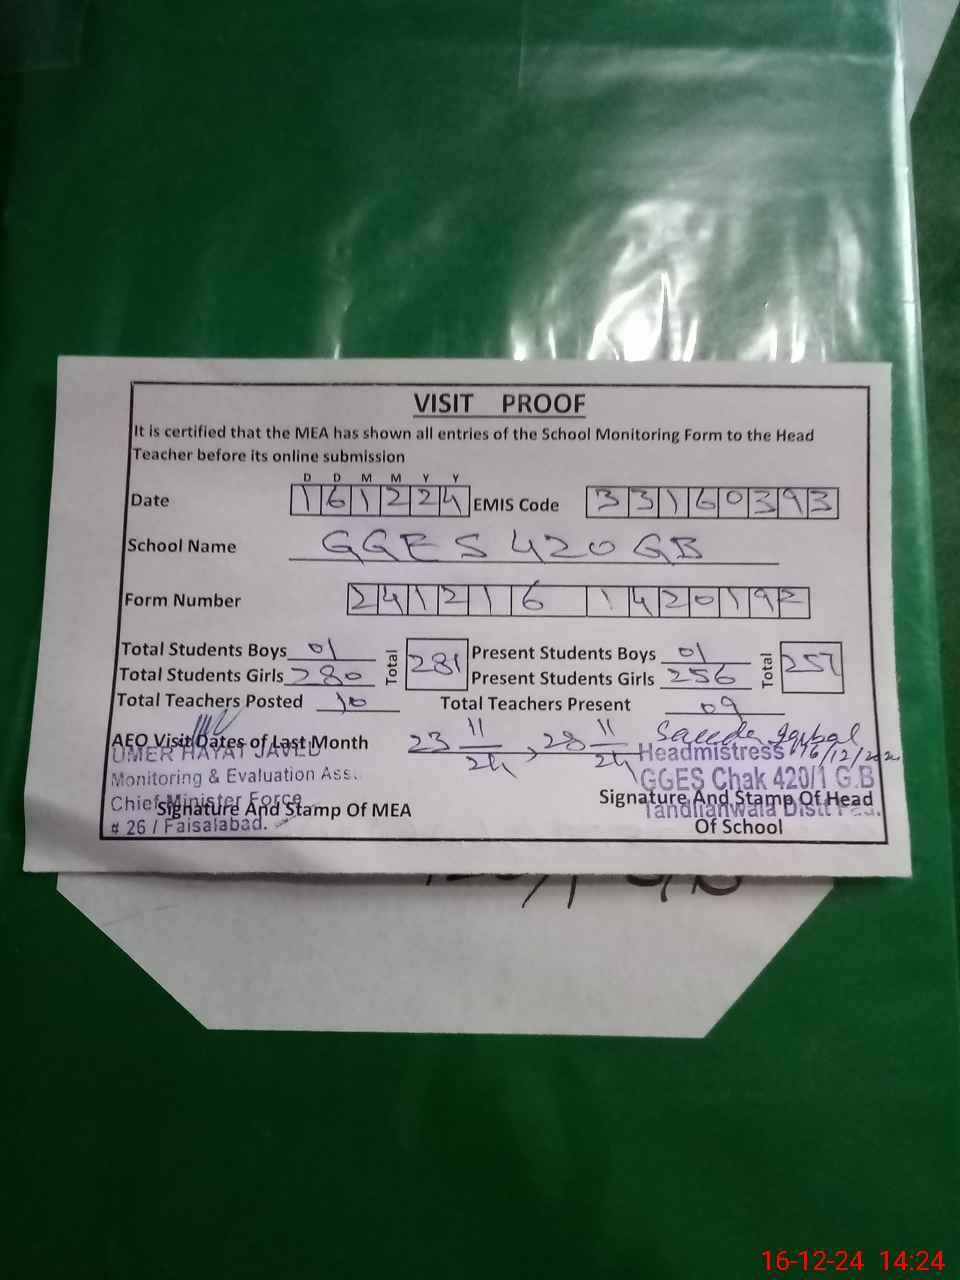 VISIT PROOF
It is certified that the MEA has shown all entries of the School Monitoring Form to the Head
Teacher before its online submission
D D M M Y Y
Date 161224 EMIS Code 33160393
School Name GGES 420 GB
Form Number 241216 1420192
Total Students Boys 01 Total 281 Present Students Boys 01 Total 257
Total Students Girls 280 Present Students Girls 256
Total Teachers Posted 10 Total Teachers Present 09
AEO Visit Dates of Last Month 23 11/24, 28 11/24
UMER HAYAT JAVED
Monitoring & Evaluation Ass.
Chief Minister Force
# 26 / Faisalabad.
Signature And Stamp Of MEA
Iqbal
16/12/20
Headmistress
GGES Chak 420/1 G.B
Tandlianwala Distt
Signature And Stamp Of Head
Of School
16-12-24 14:24